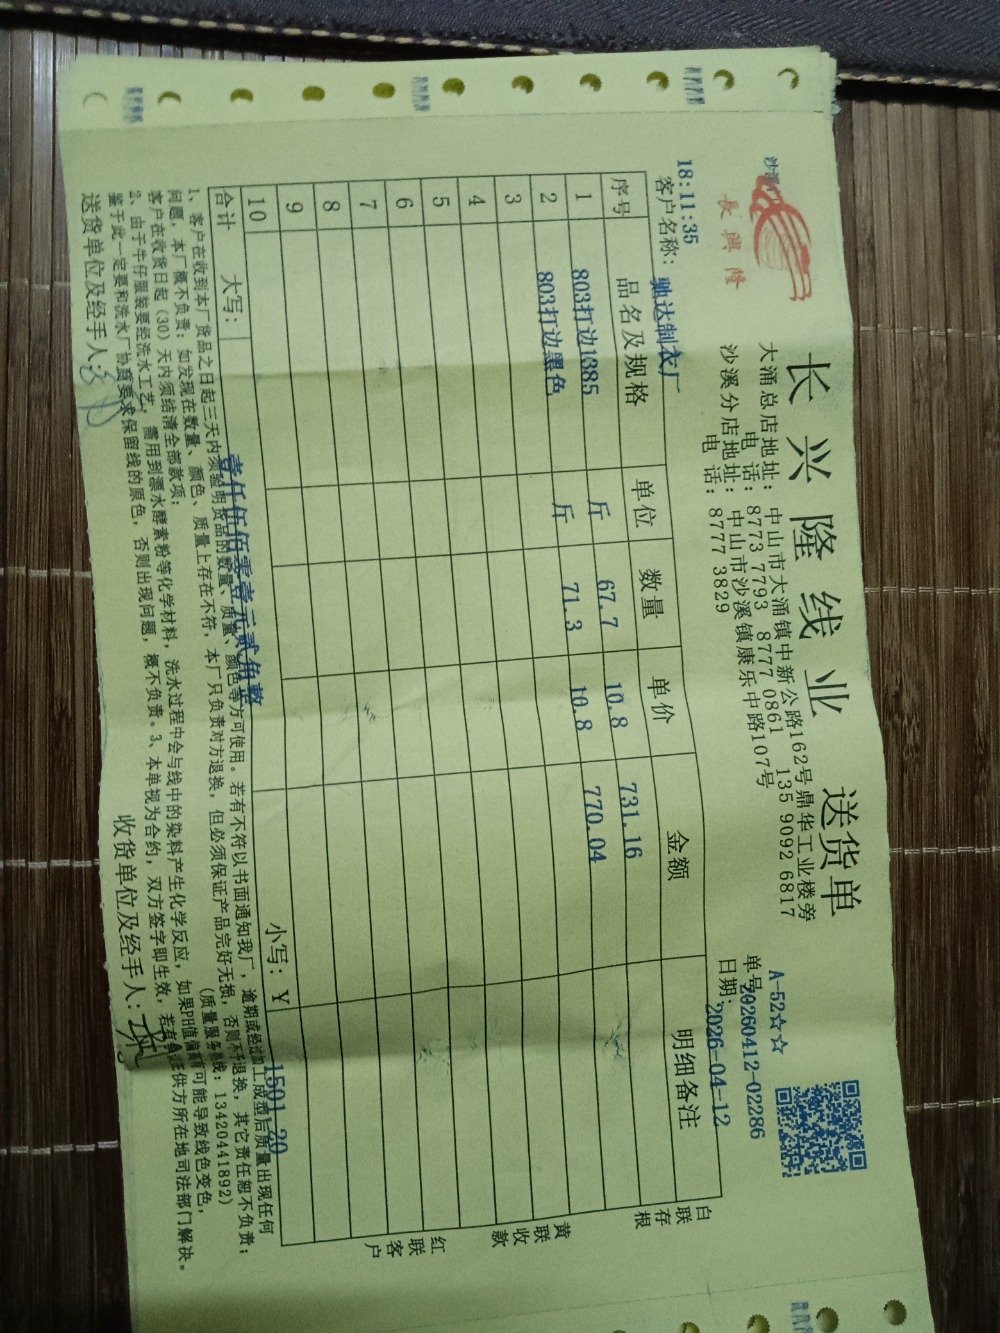 長興隆
长兴隆线业 送货单
大涌总店地址：中山市大涌镇中新公路162号鼎华工业楼旁
电 话：8773 7793 8777 0861 135 9092 6817
沙溪分店地址：中山市沙溪镇康乐中路107号
电 话：8777 3829
A-52☆☆
单号 20260412-02286
日期：2026-04-12
18:11:35
客户名称：驰达制衣厂
序号 品名及规格 单位 数量 单价 金额 明细备注
1 803打边1385 斤 67.7 10.8 731.16
2 803打边黑色 斤 71.3 10.8 770.04
3
4
5
6
7
8
9
10
合计 大写：壹仟伍佰零壹元贰角整 小写：Y 1501.20
白联存根
黄联收款
红联客户
1、客户在收到本厂货品之日起三天内须验明货品的数量、质量、颜色等方可使用。若有不符以书面通知我厂，逾期或经过加工成型后质量出现任何
问题，本厂概不负责；如发现在数量、颜色、质量上存在不符，本厂只负责对方退换，但必须保证产品完好无损，否则不予退换，其它责任恕不负责；
客户在收货日起（30）天内须结清全部款项； （质量服务热线：13420441892）
2、由于牛仔服装要经洗水工艺，需用到漂水酵素粉等化学材料，洗水过程中会与线中的染料产生化学反应，如果PH值偏高可能导致线色变色，
鉴于此一定要和洗水厂协商要求保留线的原色，否则出现问题，概不负责。3、本单视为合约，双方签字即生效，若有争议供方所在地司法部门解决。
送货单位及经手人：
收货单位及经手人：